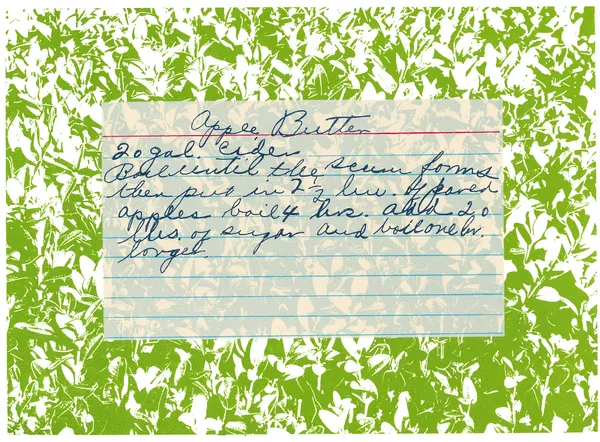 Apple Butter
20 gal. cider
Boil until the scum forms
then put in 7½ bu. of pared
apples boil 4 hrs. add 20
lbs of sugar and boil one hr.
longer.